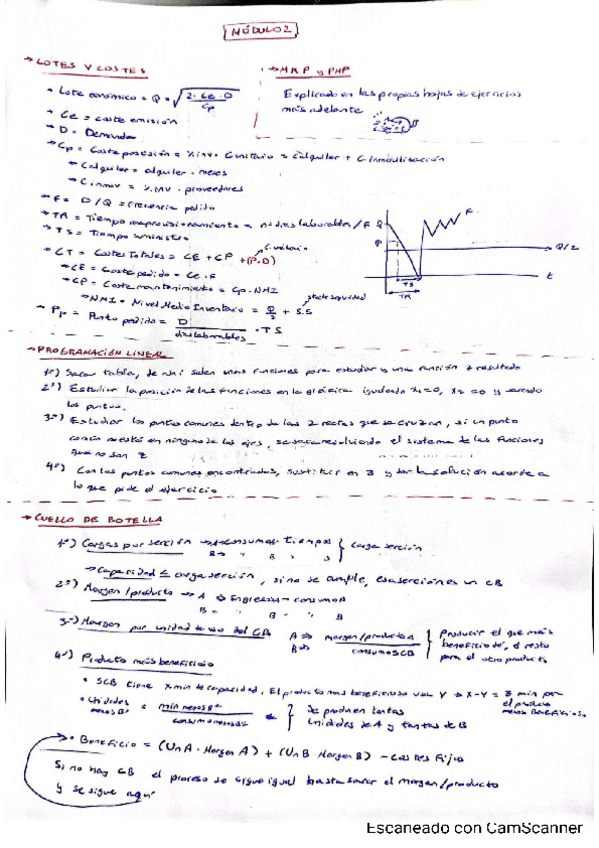 MÓDULO 2
→ LOTES Y COSTES
• Lote económico = Q = √ 2 · Ce · D / Cp
• Ce = coste emisión
• D = Demanda
• Cp = Coste posesión = % inv · C unitario = C alquiler + C inmovilización
→ C alquiler = alquiler · meses
→ C inmov = % inv · proveedores
• F = D / Q = Frecuencia pedido
• TA = Tiempo reaprovisionamiento = nº días laborables / F
• TS = Tiempo suministro
• CT = Costes Totales = CE + CP + (P·D)
→ CE = Coste pedido = Ce · F
→ CP = Coste mantenimiento = Cp · NMI
→ NMI = Nivel Medio Inventario = Q/2 + S.S
stock seguridad
• Pp = Punto pedido = D / días laborables · TS
→ MRP y PMP
Explicado en las propias hojas de ejercicios
más adelante
Q
F
Q/2
t
TS
TA
→ PROGRAMACIÓN LINEAL
1º) Sacar tabla, de ahí salen unas funciones para estudiar y una función z resultado
2º) Estudiar la posición de las funciones en la gráfica igualando x₁=0, x₂=0 y sacando
los puntos.
3º) Estudiar los puntos comunes dentro de las 2 rectas que se cruzan, si un punto
común no está en ninguno de los ejes, se saca resolviendo el sistema de las funciones
que no son z
4º) Con los puntos comunes encontrados, sustituir en z y dar la solución acorde a
lo que pide el ejercicio
→ CUELLO DE BOTELLA
1º) Cargas por sección → A → consumo A · tiempos } carga sección
B → " B " "
→ Capacidad ≤ carga sección, si no se cumple, esa sección es un CB
2º) Margen/producto → A → Ingresos A - consumo A
B = " B - " B
3º) Margen por unidad de uso del CB A ⇒ margen/producto A / consumo SCB
B ⇒
Producir el que más
beneficio dé, el resto
para el otro producto
4º) Producto más beneficioso
• SCB tiene X min de capacidad, El producto más beneficioso usa Y → X-Y = Z min para
el producto
menos beneficioso.
• Unidades menos Bº = min menos Bº / consumo menos Bº
Se producen tantas
unidades de A y tantas de B
→ • Beneficio = (Un A · Margen A) + (Un B · Margen B) - Costes Fijos
Si no hay CB el proceso se sigue igual hasta sacar el margen/producto
y se sigue aquí
Escaneado con CamScanner